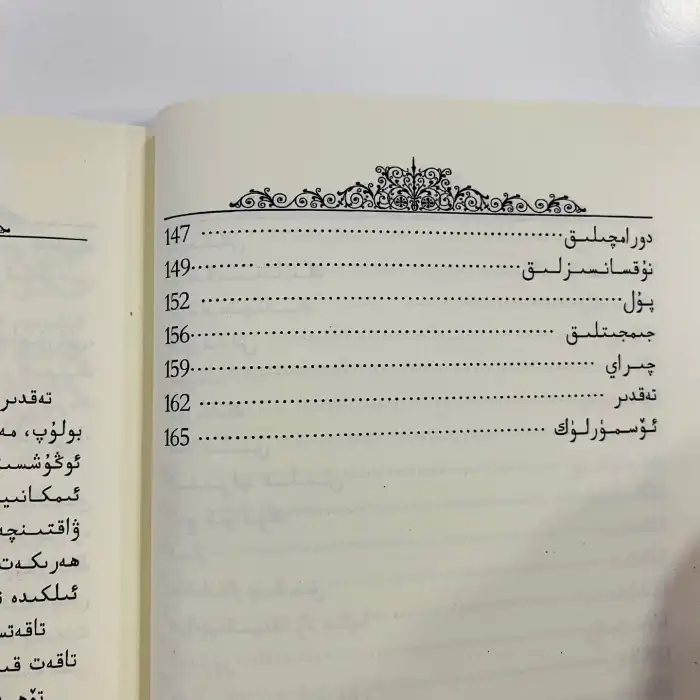 دورامچىلىق 147
نۇقسانسىزلىق 149
پۇل 152
جىمجىتلىق 156
چىراي 159
تەقدىر 162
ئۆسمۈرلۈك 165
تەقدىر
بولۇپ، مە
ئوڭۇشسىـ
ئىمكانىيـ
ۋاقتىنچە
ھەرىكەت
ئىلكىدە
تاقەتسـ
تاقەت قىـ